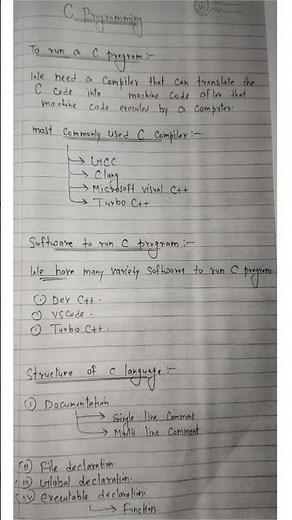 C Programming
To run a C program :-
We need a Compiler that can translate the
C Code into machine Code after that
machine code executed by a Computer.
most Commonly used C Compiler :-
→ GCC
→ Clang
→ Microsoft visual C++
→ Turbo C++
Software to run C program :-
We have many variety Softwares to run C program
① Dev C++ .
② VS Code .
③ Turbo C++ .
Structure of C language :-
① Documentation
→ Single line Comment
→ Multi line Comment
(ii) File declaration.
(iii) Global declaration.
(iv) executable declaration.
→ Function